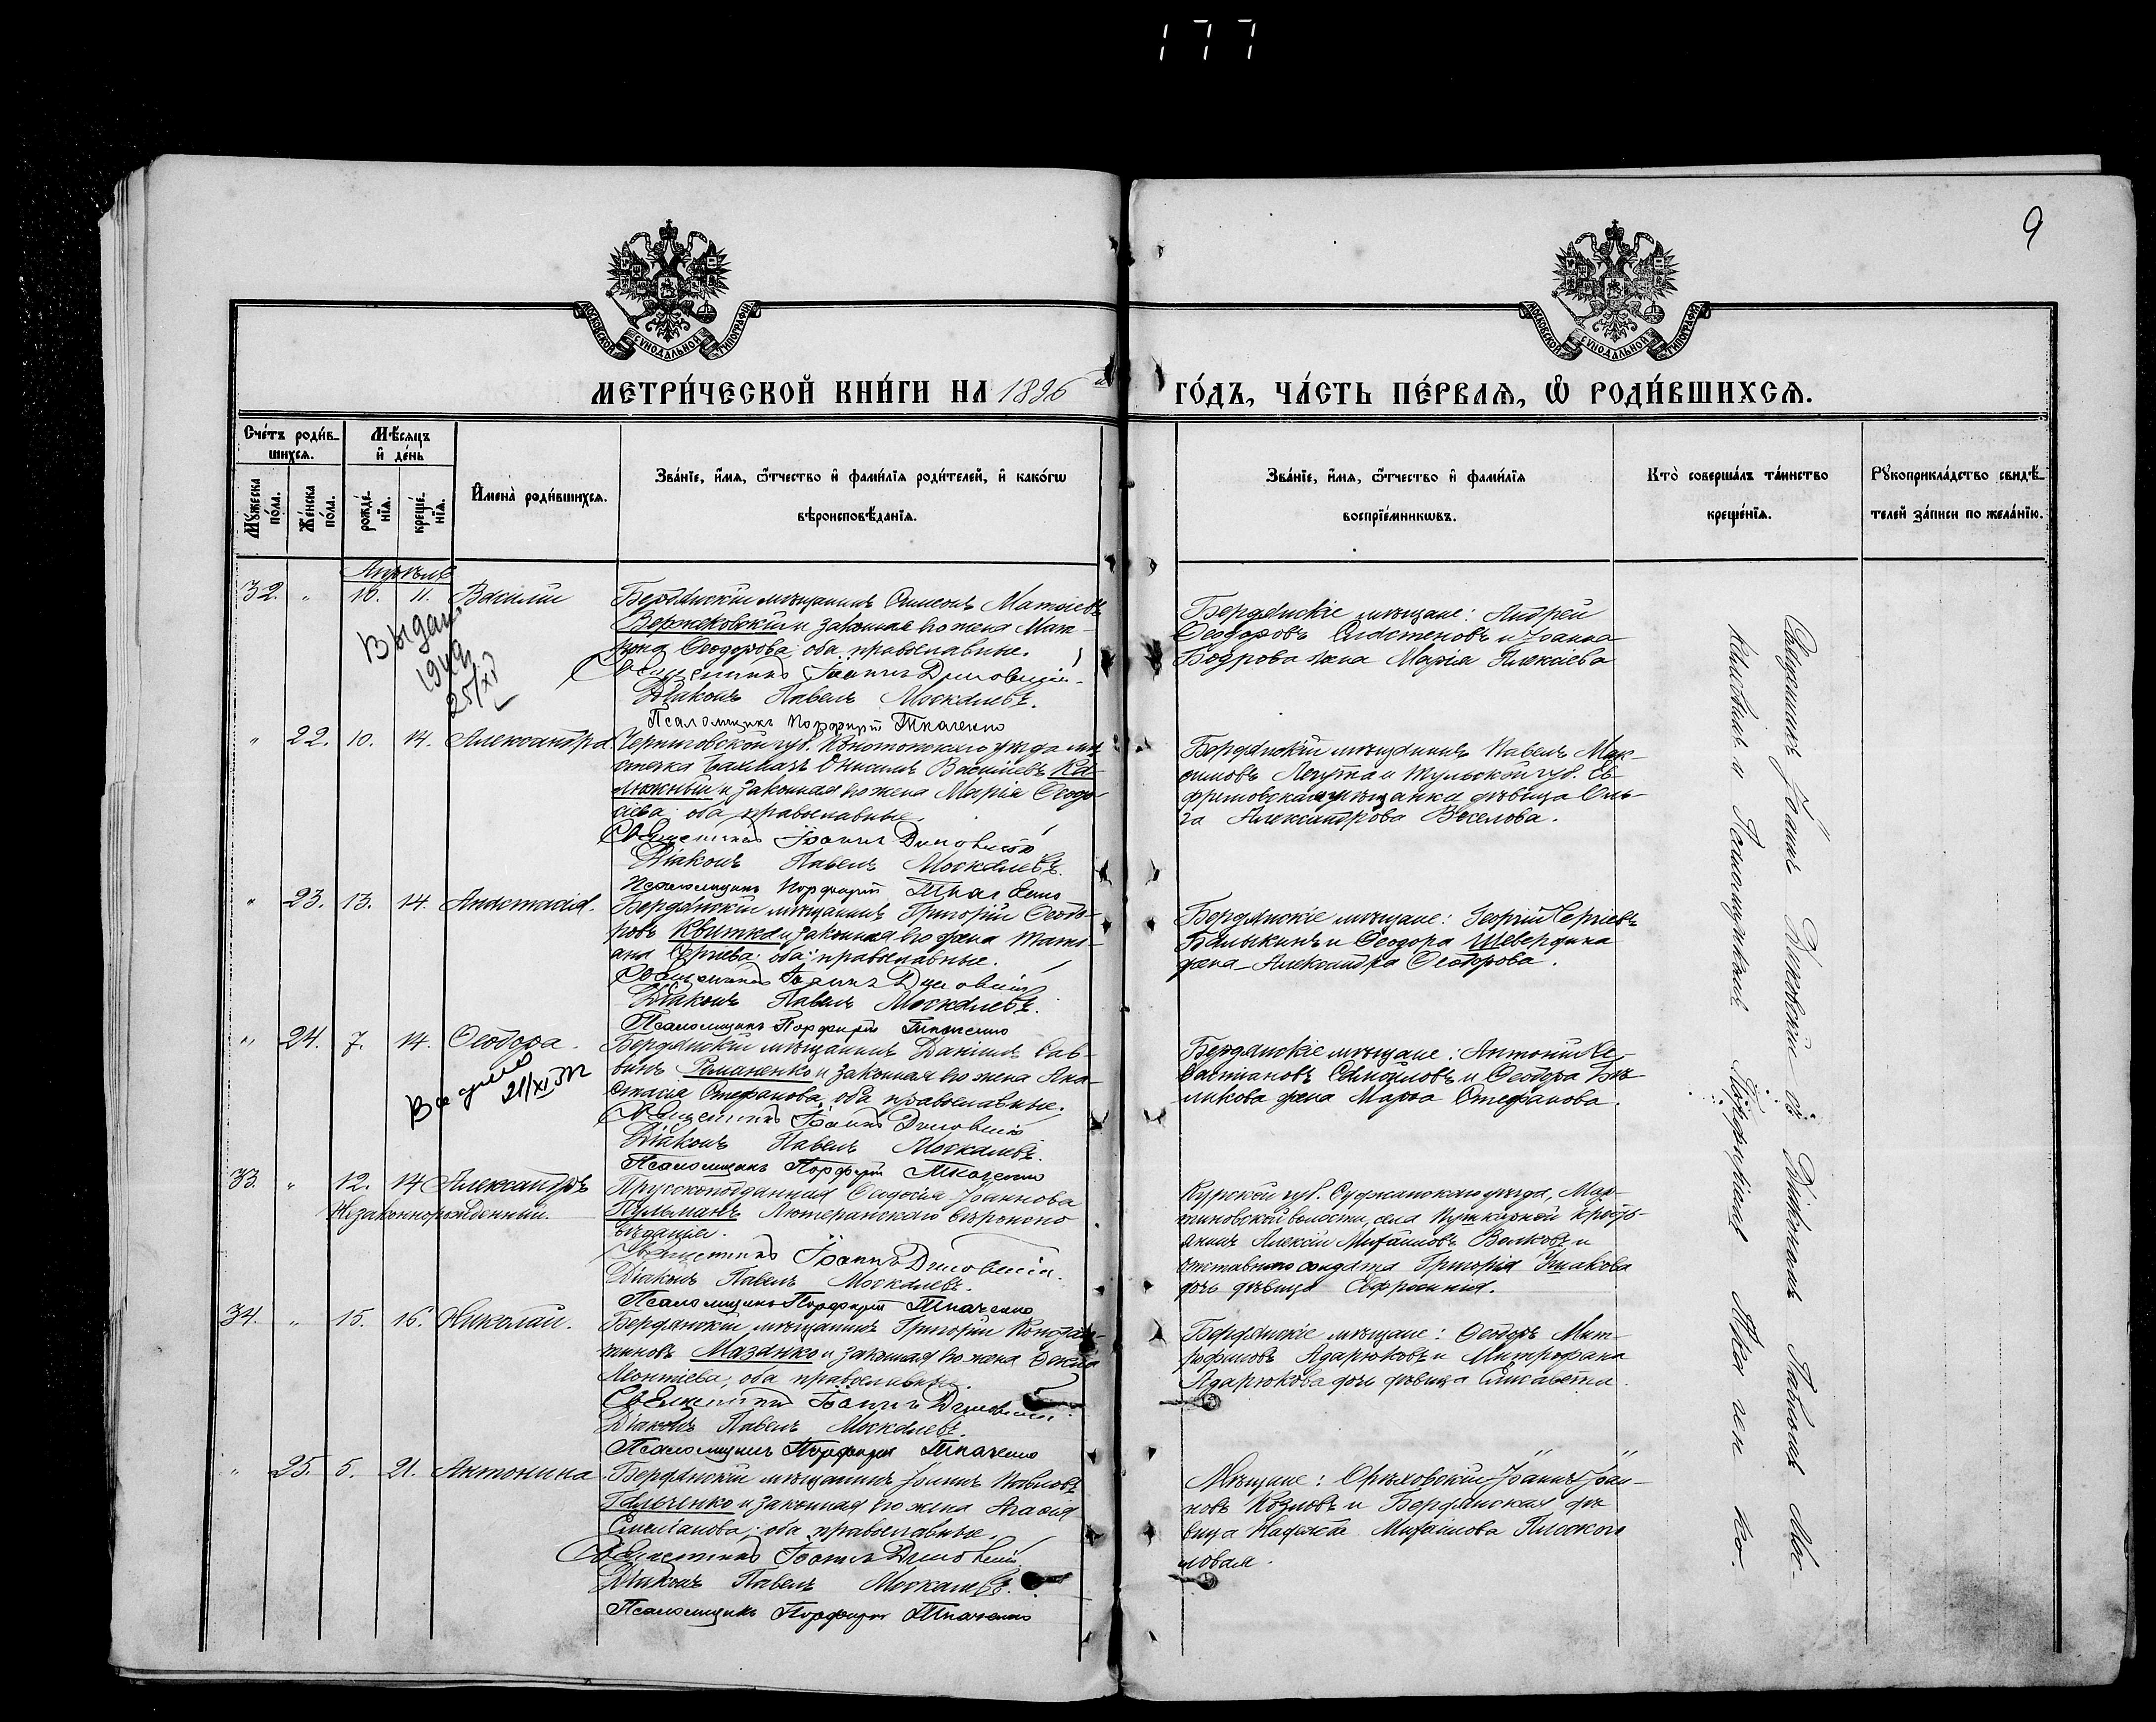 177
9
МОСКОВСКОЙ СѴНОДАЛЬНОЙ ТИПОГРАФІИ
МОСКОВСКОЙ СѴНОДАЛЬНОЙ ТИПОГРАФІИ
МЕТРИ́ЧЕСКОЙ КНИ́ГИ НА 1896 й
ГО́ДЪ, ЧА́СТЬ ПЕ́РВАѦ, Ѽ РОДИ́ВШИХСѦ.
Сче́тъ роди́вшихсѧ.
Мѣ́сѧцъ и҆ де́нь
Мꙋ́жеска по́ла.
Же́нска по́ла.
рожде́нїѧ.
креще́нїѧ.
И҆мена̀ роди́вшихсѧ.
Зва́нїе, и҆́мѧ, ѻ҆́тчество и҆ фами́лїѧ роди́телей, и҆ како́гѡ
вѣроисповѣ́данїѧ.
Зва́нїе, и҆́мѧ, ѻ҆́тчество и҆ фами́лїѧ
воспрїе́мникѡвъ.
Кто̀ соверша́лъ та́инство
креще́нїѧ.
Рꙋкоприкла́дство свидѣ́-
телей за́писи по жела́нїю.
Апрѣль
32. " 10. 11. Василій
Бердянскій мѣщанинъ Симеонъ Матѳіевъ
Вержаковскій и законная его жена Мат-
рона Ѳеодорова; оба православные.
Священникъ Іоаннъ Диковскій
Діаконъ Павелъ Москалевъ.
Псаломщикъ Порфирій Ткаченко
Бердянскіе мѣщане: Андрей
Ѳеодоровъ и Іоанна
Бодрова жена Марія Алексіева
Выдан
1949
25/XI
" 22. 10. 14. Александра.
Черниговской губ. Конотопскаго уѣзда мѣ-
стечка Бахмачъ Онисимъ Василіевъ Ка-
люжный и законная его жена Марія Ѳеодо-
сіева; оба православные.
Священникъ Іоаннъ Диковскій
Діаконъ Павелъ Москалевъ.
Псаломщикъ Порфирій Ткаченко
Бердянскій мѣщанинъ Павелъ Мак-
симовъ и Тульской губ. Еф-
ремовская мѣщанка дѣвица Оль-
га Александрова Веселова.
" 23. 13. 14. Анастасія.
Бердянскій мѣщанинъ Григорій Ѳеодо-
ровъ Квитка и законная его жена Тать-
яна Сергіева; оба православные.
Священникъ Іоаннъ Диковскій
Діаконъ Павелъ Москалевъ.
Псаломщикъ Порфирій Ткаченко
Бердянскіе мѣщане: Георгій Сергіевъ
Балыкинъ и Ѳеодора Шевердина
жена Александра Ѳеодорова.
" 24. 7. 14. Ѳеодора.
Бердянскій мѣщанинъ Даніилъ Сав-
винъ Романенко и законная его жена Ана-
стасія Стефанова; оба православные.
Священникъ Іоаннъ Диковскій
Діаконъ Павелъ Москалевъ.
Псаломщикъ Порфирій Ткаченко
Бердянскіе мѣщане: Антоній Се-
вастіановъ Самойловъ и Ѳеодора
жена Марѳа Стефанова.
21/XI
33. " 12. 14 Александръ
Незаконнорожденный.
Прусскоподданная Ѳеодосія Іоаннова
Гульманъ Лютеранскаго вѣроиспо-
вѣданія.
Священникъ Іоаннъ Диковскій.
Діаконъ Павелъ Москалевъ.
Псаломщикъ Порфирій Ткаченко
Курской губ. Суджанскаго уѣзда, Мар-
тиновской волости, села Пушкарной кресть-
янинъ Алексій Михаиловъ Волковъ и
отставного солдата Григорія Ушакова
дочь дѣвица Евфросинія.
34. " 15. 16. Николай.
Бердянскій мѣщанинъ Григорій Констан-
тиновъ Мазанко и законная его жена Ѳекла
Леонтіева; оба православные.
Священникъ Іоаннъ Диковскій
Діаконъ Павелъ Москалевъ.
Псаломщикъ Порфирій Ткаченко
Бердянскіе мѣщане: Ѳеодоръ Мит-
рофановъ Адарюковъ и Митрофана
Адарюкова дочь дѣвица Елисавета.
" 25. 5. 21. Антонина
Бердянскій мѣщанинъ Іоаннъ Павловъ
Гальченко и законная его жена Агаѳія
Емеліанова; оба православные.
Священникъ Іоаннъ Диковскій
Діаконъ Павелъ Москалевъ.
Псаломщикъ Порфирій Ткаченко
Мѣщане: Орѣховскій Іоаннъ Іоан-
новъ Козловъ и Бердянская дѣ-
вица Надежда Михаилова
Священникъ Іоаннъ Диковскій съ Діакономъ Павломъ Мос-
калевымъ и Псаломщикомъ Порфиріемъ Ткаченко.